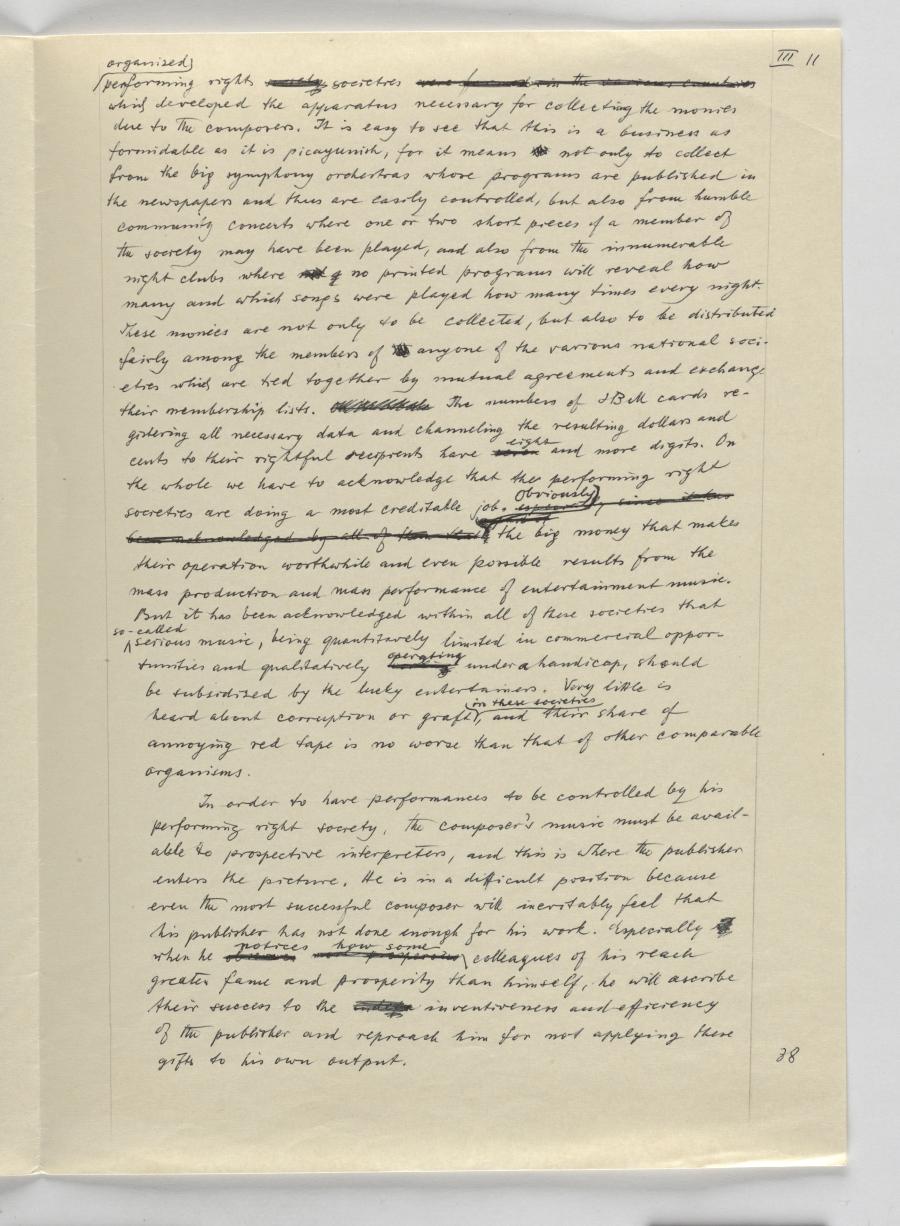 III 11
organized
performing right societies were formed in the various countries
which developed the apparatus necessary for collecting the monies
due to the composers. It is easy to see that this is a business as
formidable as it is picayunish, for it means not only to collect
from the big symphony orchestras whose programs are published in
the newspapers and thus are easily controlled, but also from humble
community concerts where one or two short pieces of a member of
the society may have been played, and also from the innumerable
night clubs where no printed programs will reveal how
many and which songs were played how many times every night.
These monies are not only to be collected, but also to be distributed
fairly among the members of anyone of the various national soci-
eties which are tied together by mutual agreements and exchange
their membership lists. The numbers of IBM cards re-
gistering all necessary data and channeling the resulting dollars and
eight
cents to their rightful recipients have seven and more digits. On
the whole we have to acknowledge that the performing right
Obviously
societies are doing a most creditable job. , since it has
been acknowledged by all of them that the big money that makes
their operation worthwhile and even possible results from the
mass production and mass performance of entertainment music.
But it has been acknowledged within all of these societies that
so-called
serious music, being quantitavely limited in commercial oppor-
operating
tunities and qualitatively under a handicap, should
be subsidized by the lucky entertainers. Very little is
in these societies
heard about corruption or graft, and their share of
annoying red tape is no worse than that of other comparable
organisms.
In order to have performances to be controlled by his
performing right society, the composer's music must be avail-
able to prospective interpreters, and this is where the publisher
enters the picture. He is in a difficult position because
even the most successful composer will inevitably feel that
his publisher has not done enough for his work. Especially
notices how some
when he colleagues of his reach
greater fame and prosperity than himself, he will ascribe
their success to the inventiveness and efficiency
of the publisher and reproach him for not applying these
gifts to his own output.
38